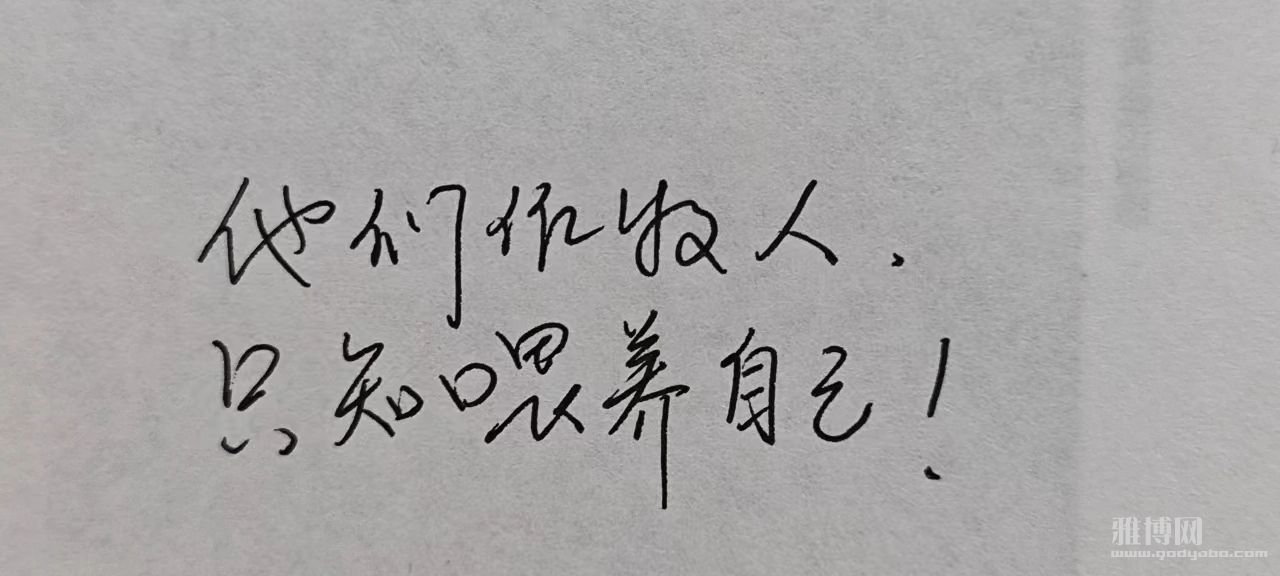 他们作牧人.
只知喂养自己!
雅博网
www.godyobo.com